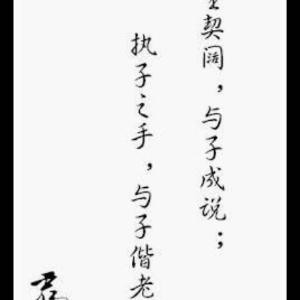 契阔，与子成说；
执子之手，与子偕老